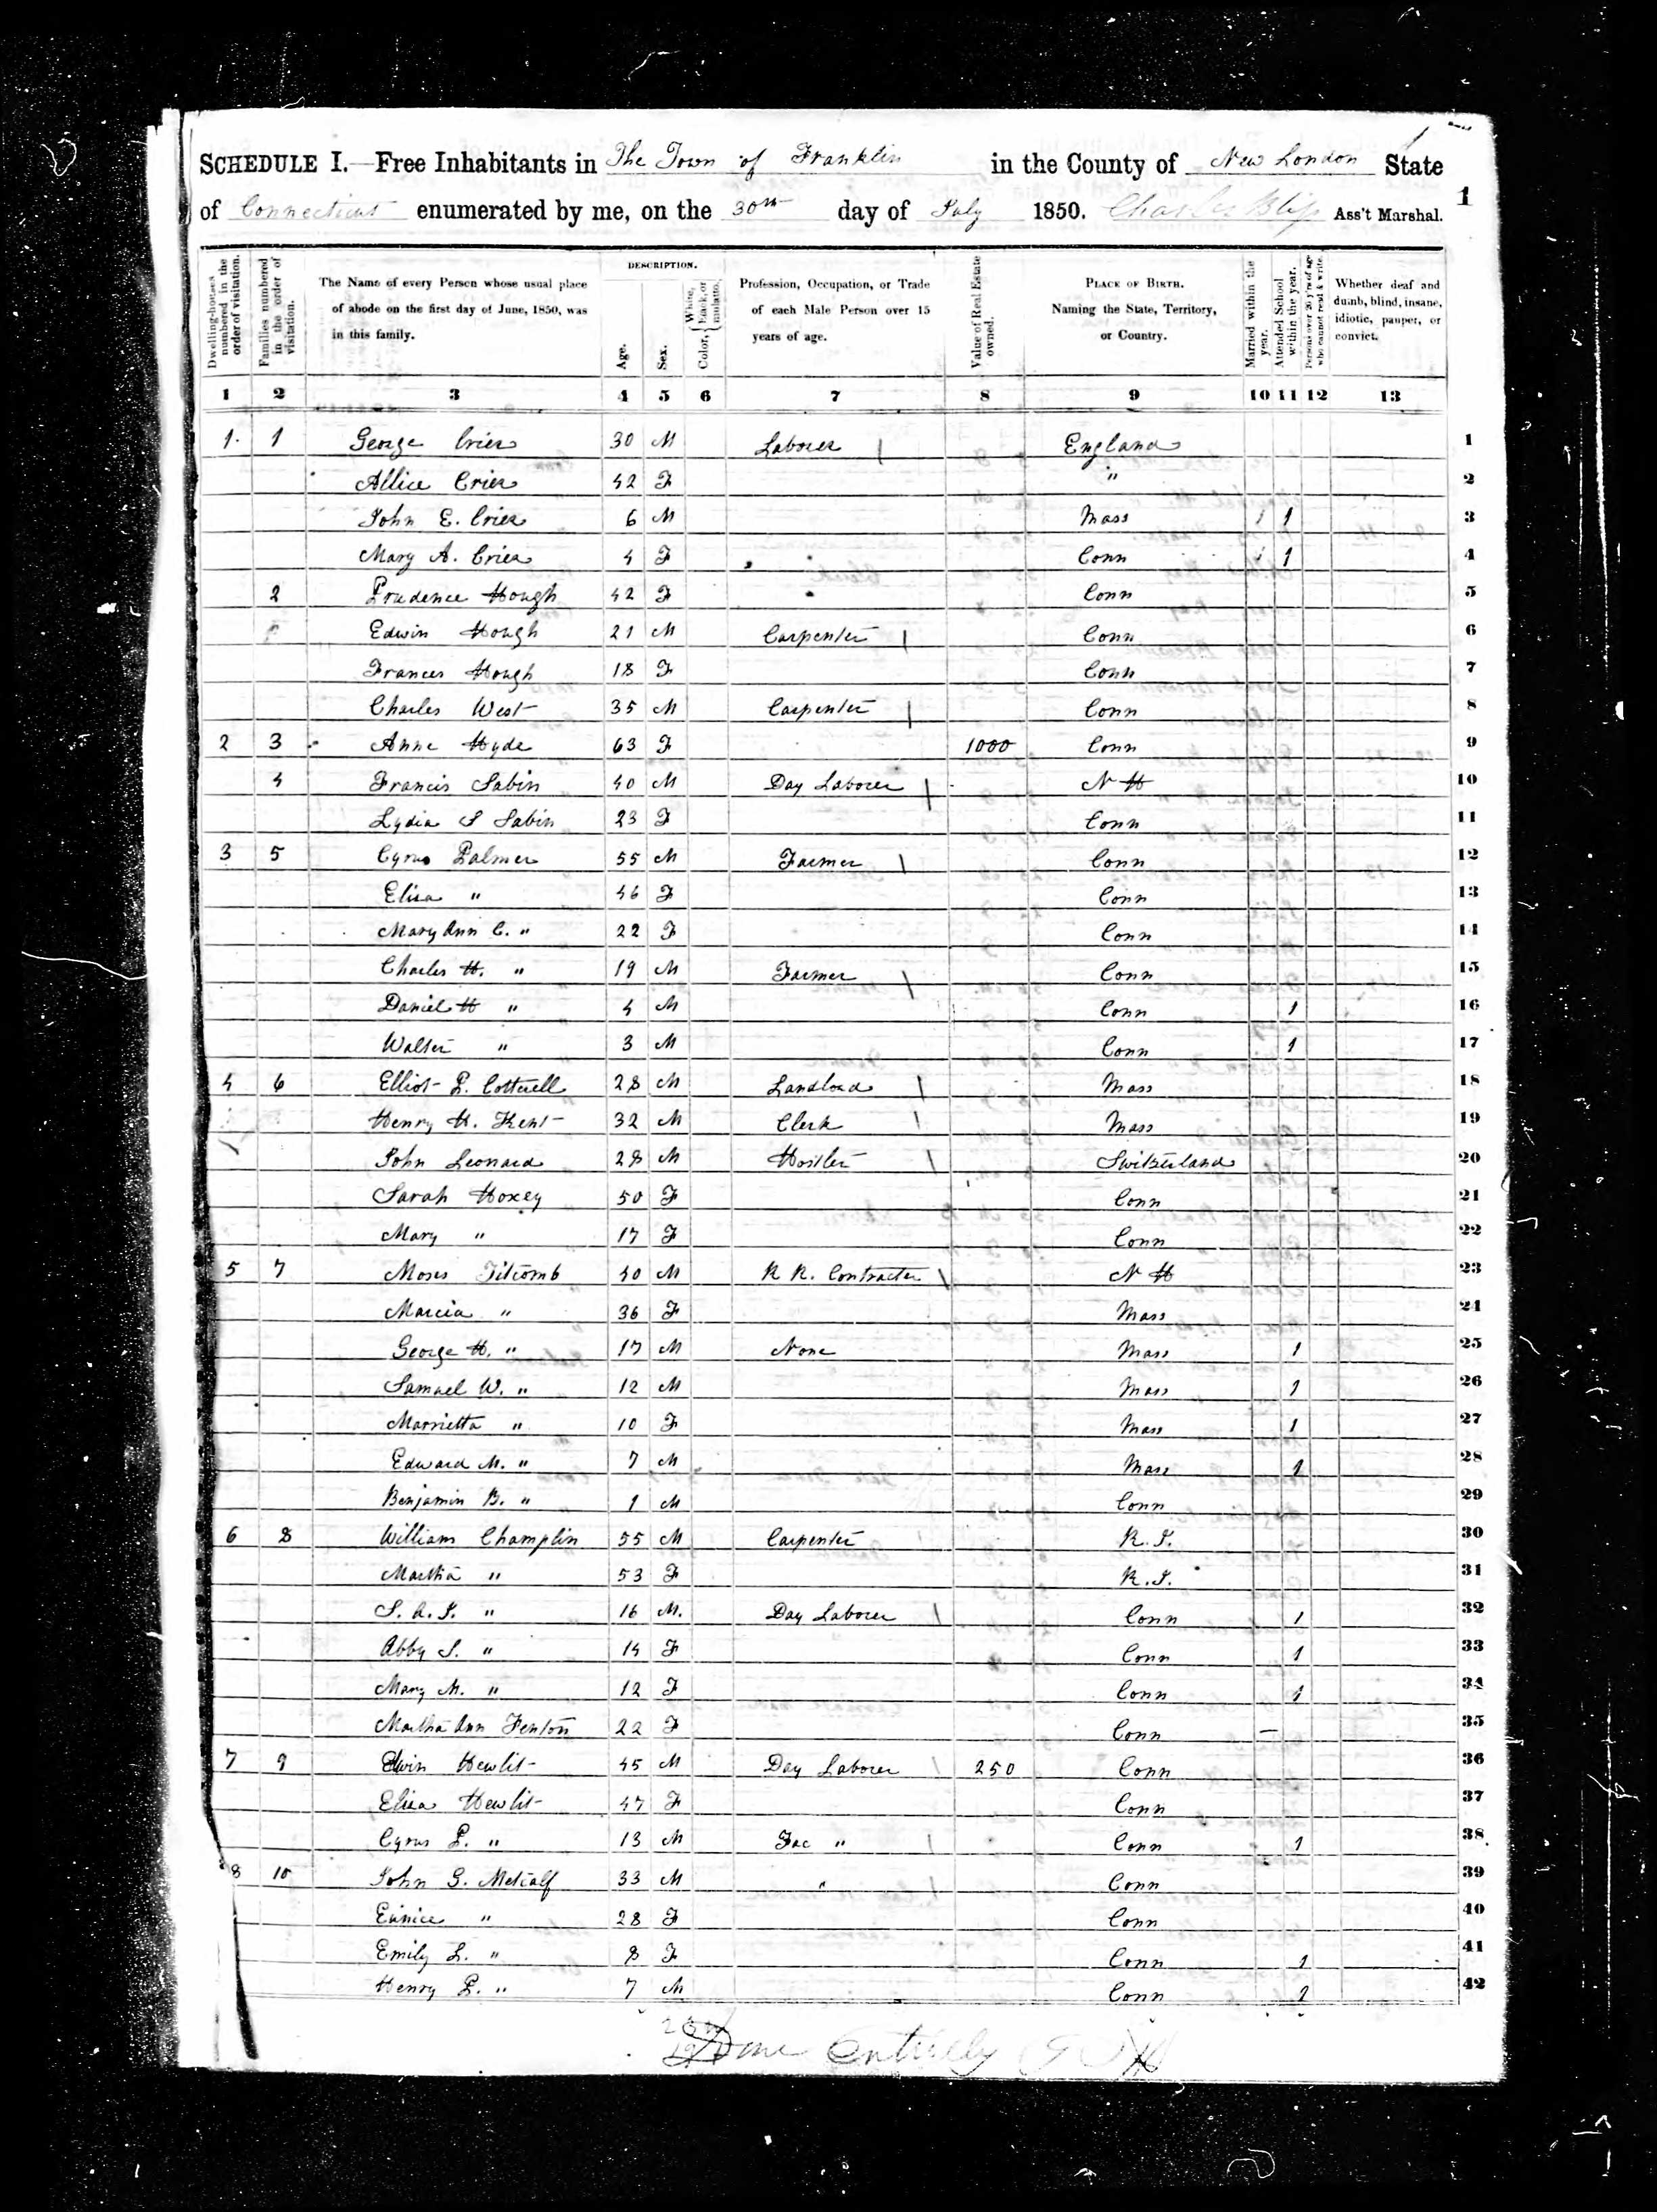 1
SCHEDULE I.—Free Inhabitants in The Town of Franklin in the County of New London State
of Connecticut enumerated by me, on the 30th day of July 1850. Charles Bliss Ass't Marshal. 1
Dwelling-houses numbered in the order of visitation.
Families numbered in the order of visitation.
The Name of every Person whose usual place of abode on the first day of June, 1850, was in this family.
DESCRIPTION.
Age.
Sex.
Color, { White, black, or mulatto.
Profession, Occupation, or Trade of each Male Person over 15 years of age.
Value of Real Estate owned.
PLACE OF BIRTH. Naming the State, Territory, or Country.
Married within the year.
Attended School within the year.
Persons over 20 y'rs of age who cannot read & write.
Whether deaf and dumb, blind, insane, idiotic, pauper, or convict.
1 2 3 4 5 6 7 8 9 10 11 12 13
1 1 George Crier 30 M Laborer England 1
Allice Crier 42 F " 2
John E. Crier 6 M Mass 1 3
Mary A. Crier 4 F Conn 1 4
2 Prudence Hough 42 F Conn 5
Edwin Hough 21 M Carpenter Conn 6
Frances Hough 18 F Conn 7
Charles West 35 M Carpenter Conn 8
2 3 Anne Hyde 63 F 1000 Conn 9
4 Francis Sabin 40 M Day Laborer N H 10
Lydia S Sabin 23 F Conn 11
3 5 Cyrus Palmer 55 M Farmer Conn 12
Elisa " 46 F Conn 13
Mary Ann C. " 22 F Conn 14
Charles H. " 19 M Farmer Conn 15
Daniel H " 4 M Conn 1 16
Walter " 3 M Conn 1 17
4 6 Elliot P. Cottrell 28 M Landlord Mass 18
Henry H. Kent 32 M Clerk Mass 19
John Leonard 28 M Hostler Switzerland 20
Sarah Hoxey 50 F Conn 21
Mary " 17 F Conn 22
5 7 Moses Titcomb 40 M R R. Contracter N H 23
Marcia " 36 F Mass 24
George H. " 17 M None Mass 1 25
Samuel W. " 12 M Mass 1 26
Marrietta " 10 F Mass 1 27
Edward M. " 7 M Mass 1 28
Benjamin B. " 1 M Conn 29
6 8 William Champlin 55 M Carpenter R. I. 30
Martha " 53 F R. I. 31
S. A. I. " 16 M. Day Laborer Conn 1 32
Abby S. " 14 F Conn 1 33
Mary M. " 12 F Conn 1 34
Martha Ann Fenton 22 F Conn — 35
7 9 Elwin Hewlit 45 M Day Laborer 250 Conn 36
Eliza Hewlit 47 F Conn 37
Cyrus P. " 13 M Fac " Conn 1 38
8 10 John G. Metcalf 33 M " Conn 39
Eunice " 28 F Conn 40
Emily L. " 8 F Conn 1 41
Henry P. " 7 M Conn 1 42
Done Entirely